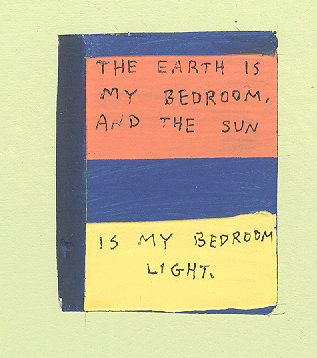 THE EARTH IS
MY BEDROOM,
AND THE SUN
IS MY BEDROOM
LIGHT.